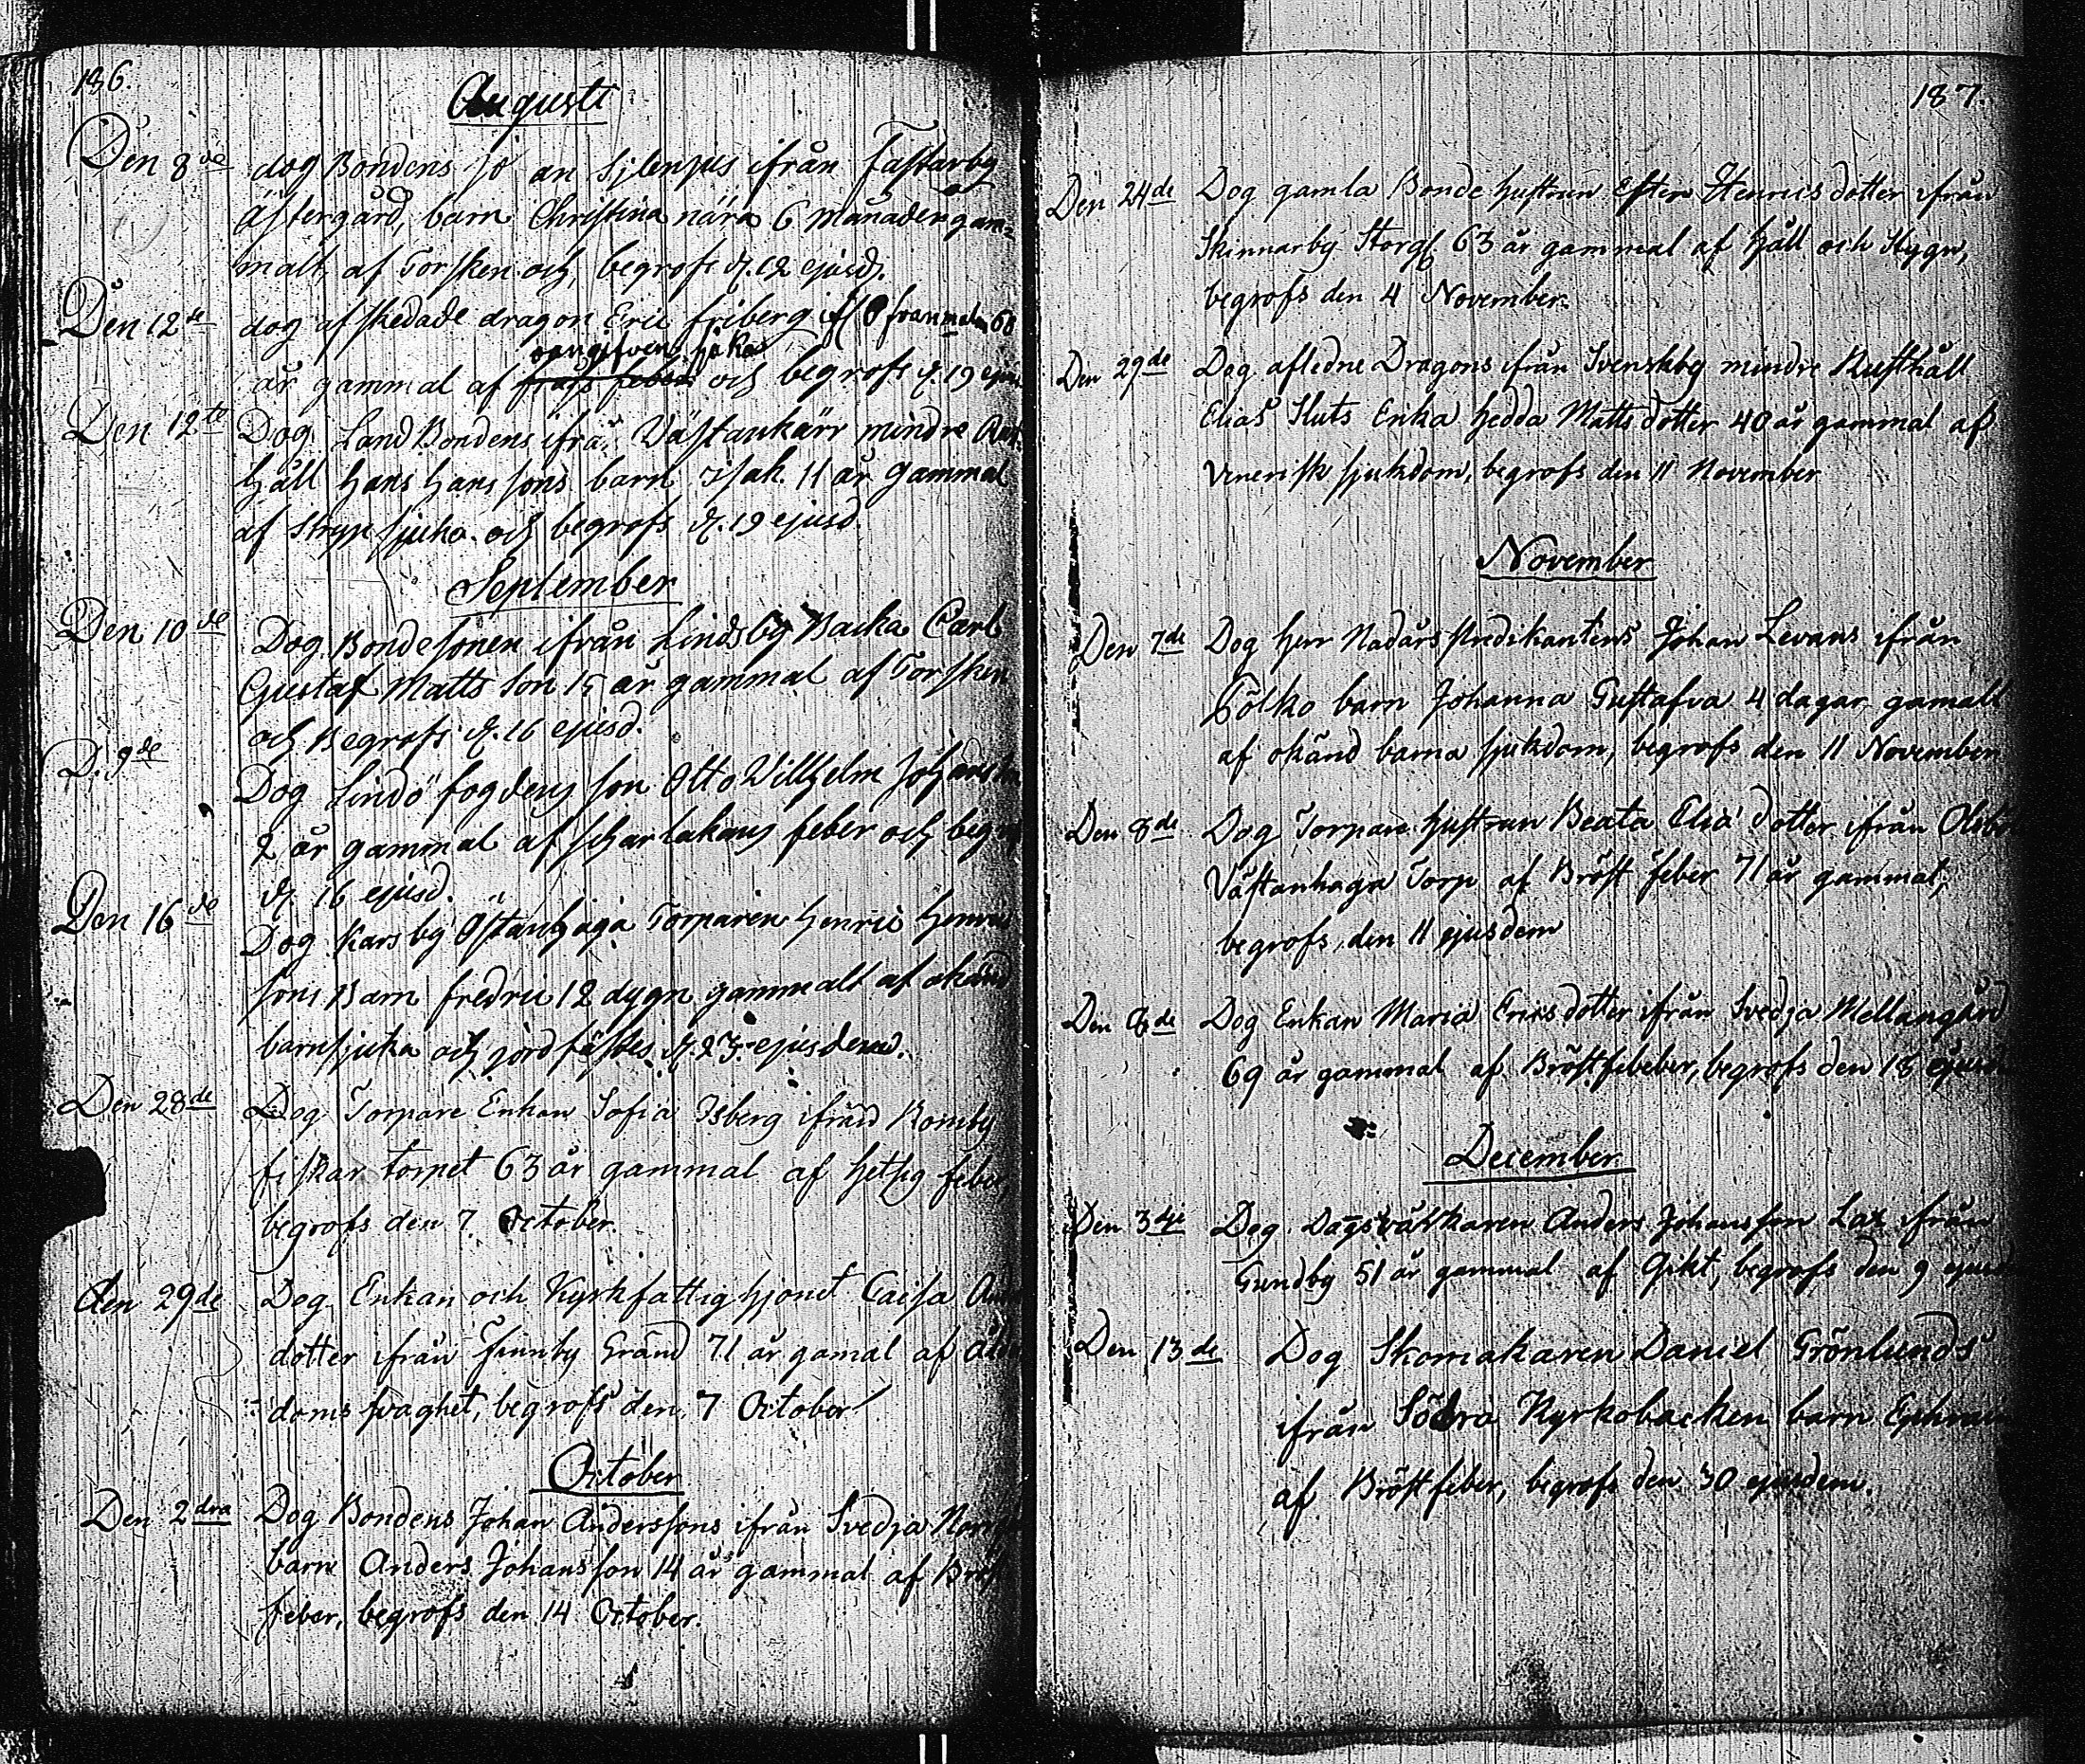 186.
Augusti
Den 8de dog Bondens Jo an Sjlenjus ifrån Fastarby
Åstergård, barn Christina nära 6 månader gam=
malt, af Torsken och begrofs d. 12 ejusd.
Den 12te dog afskedade dragon Eric friberg 68
oangifven sjuka
år gammal af och begrofs d. 19 ejus
Den 12te Dog Land Bondens ifrån Västankärr mindre Rust
håll Hans Hans sons barn Isak 11 år gammal
af Stryp sjuka och begrofs d. 19 ejusd.
September
Den 10de Dog Bondesonen ifrån Lindsby Backa Carl
Gustaf Matts Son 15 år gammal af Torsken
och Begrofs d. 16 ejusd.
D. 9de Dog Lindö fogdens son Otto Vilhelm Johans
2 år gammal af scharlakans feber och begr
d. 16 ejusd.
Den 16de Dog Karsby Östanhaga Torparen Henric Henric
sons Barn fredric 12 dygn gammalt af okänd
barnsjuka och jordfästes d. 23. ejusdem.
Den 28de Dog Torpare Enkan Sofia Isberg ifrån Romby
fiskar torpet 63 år gammal af hetsig feber
begrofs den 7 October.
den 29de Dog Enkan och Kyrkfattighjonet Caisa
dotter ifrån Finnby Gränd 71 år gamal af ål
doms svaghet, begrofs den 7 October
October
Den 2dra Dog Bondens Johan Anderssons ifrån Svedja Norr
barn Anders Johansson 14 år gammal af Bröst
feber, begrofs den 14 October.
187.
Den 24de Dog gamla Bonde hustrun Ester Henrics dotter ifrån
Skinnarby Storg 63 år gammal af Håll och Stygn,
begrofs den 4 November.
Den 29de Dog afledne Dragons ifrån Svenskby mindre Rusthåll
Elias Sluts Enka Hedda Matts dotter 40 år gammal af
Venerisk sjukdom, begrofs den 11 November
November
Den 7de Dog Herr Nadårs Predikantens Johan Levans ifrån
Tölko barn Johanna Gustafva 4 dagar gamalt
af okänd barna sjukdom, begrofs den 11 November
Den 8de Dog Torpare hustrun Beata Elia dotter ifrån
Västanhaga Torp af Bröst feber 71 år gammal,
begrofs den 11 ejusdem
Den 8de Dog Enkan Maria Erics dotter ifrån Svedja Mellangård
69 år gammal af Bröstfebeber, begrofs den 18 ejusd
December
Den 3dje Dog Dagsvärkaren Anders Johansson Lax ifrån
Gundby 51 år gammal af Gikt, begrofs den 9 ejusd
Den 13de Dog Skomakaren Daniel Grönlunds
ifrån Södra Kyrkobacken barn Ephraim
af Bröstfeber, begrofs den 30 ejusdem.